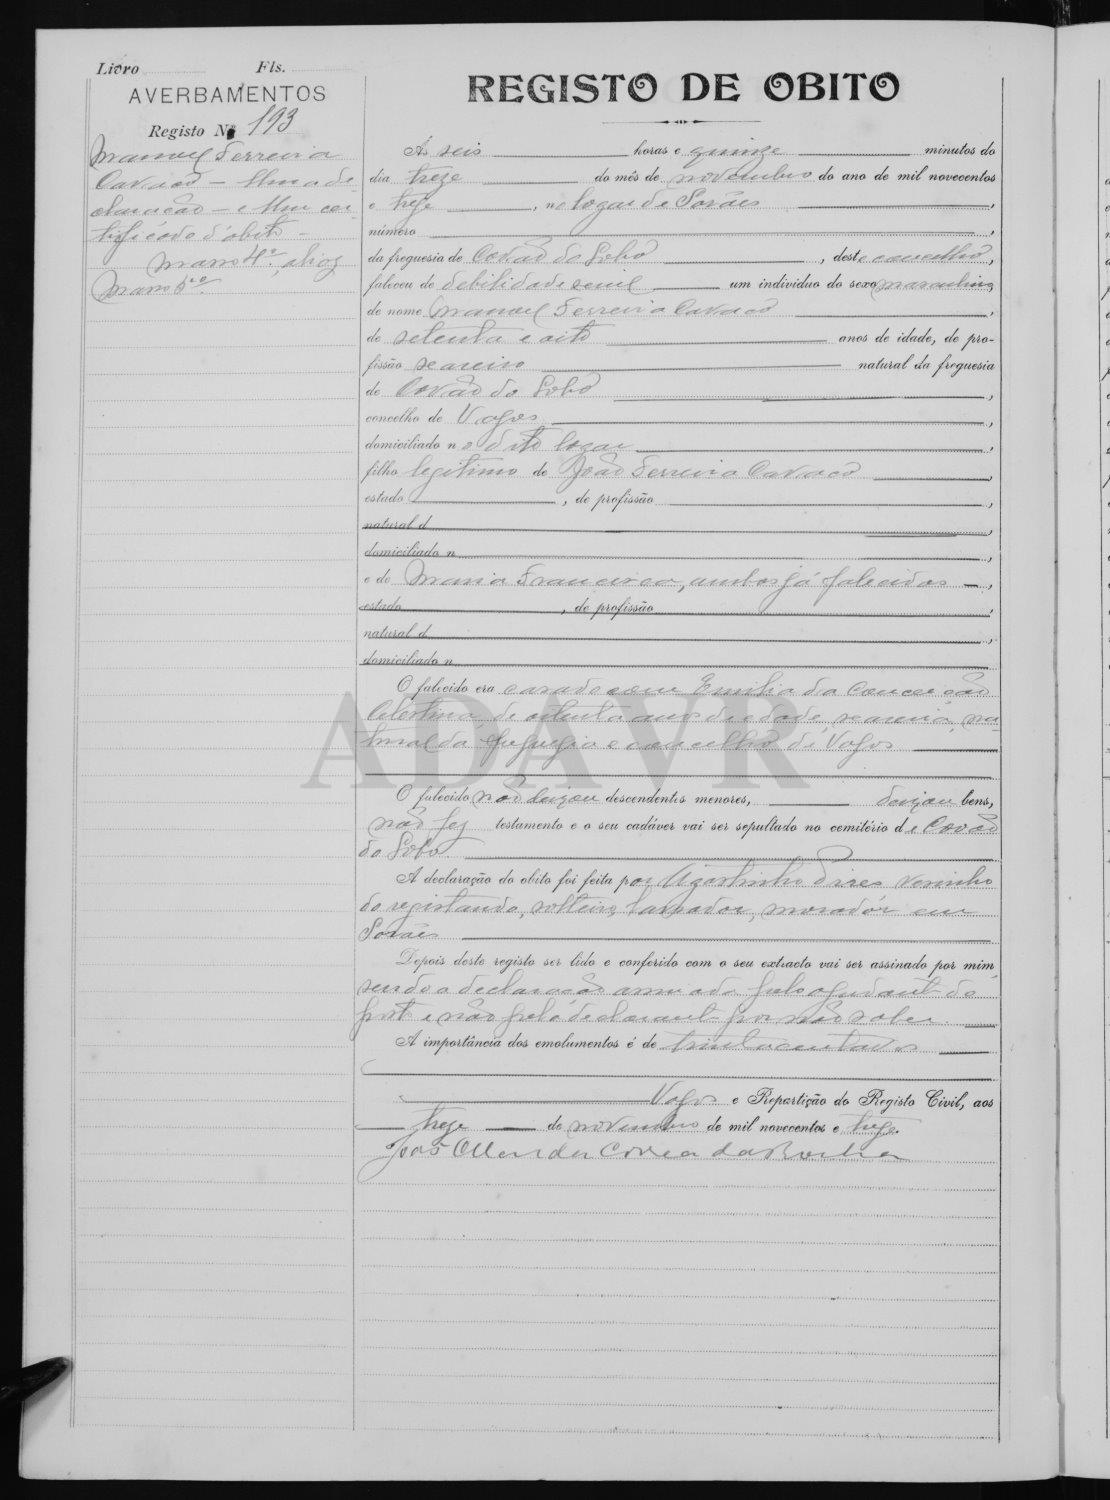 Livro Fls.
AVERBAMENTOS
Registo Nº 193
Manuel Ferreira
Cavaco — Uma de
claração — e Um cer
tificado d'obito —
Masso 4º, aliaz
Masso 5º
REGISTO DE OBITO
Ás seis horas e quinze minutos do
dia treze do mês de novembro do ano de mil novecentos
e treze, no logar de Sorães,
número
da freguesia de Covão do Lobo, deste concelho,
faleceu de debilidade senil um individuo do sexo masculino
de nome Manuel Ferreira Cavaco,
de setenta e oito anos de idade, de pro-
fissão seareiro natural da freguesia
de Covão do Lobo,
concelho de Vagos,
domiciliado no dito logar,
filho legitimo de João Ferreira Cavaco,
estado, de profissão,
natural d,
domiciliado n,
e de Maria Francisca, ambos já falecidos —,
estado, de profissão,
natural d,
domiciliado n
O falecido era casado com Emilia da Conceição
Celestina, de oitenta anos de edade, seareira, na
tural da freguezia e concelho de Vagos
O falecido não deixou descendentes menores, deixou bens,
não fez testamento e o seu cadáver vai ser sepultado no cemitério de Covão
do Lobo.
A declaração do obito foi feita por Agostinho Pires visinho
do registando, solteiro, lavrador, morador em
Sorães
Depois deste registo ser lido e conferido com o seu extracto vai ser assinado por mim,
sendo a declaração assinada pelo ajudante do
posto e não pelo declarante por não saber
A importância dos emolumentos é de trinta centavos
Vagos e Repartição do Registo Civil, aos
treze de novembro de mil novecentos e treze.
João Mendes Correa da Rocha
ADAVR